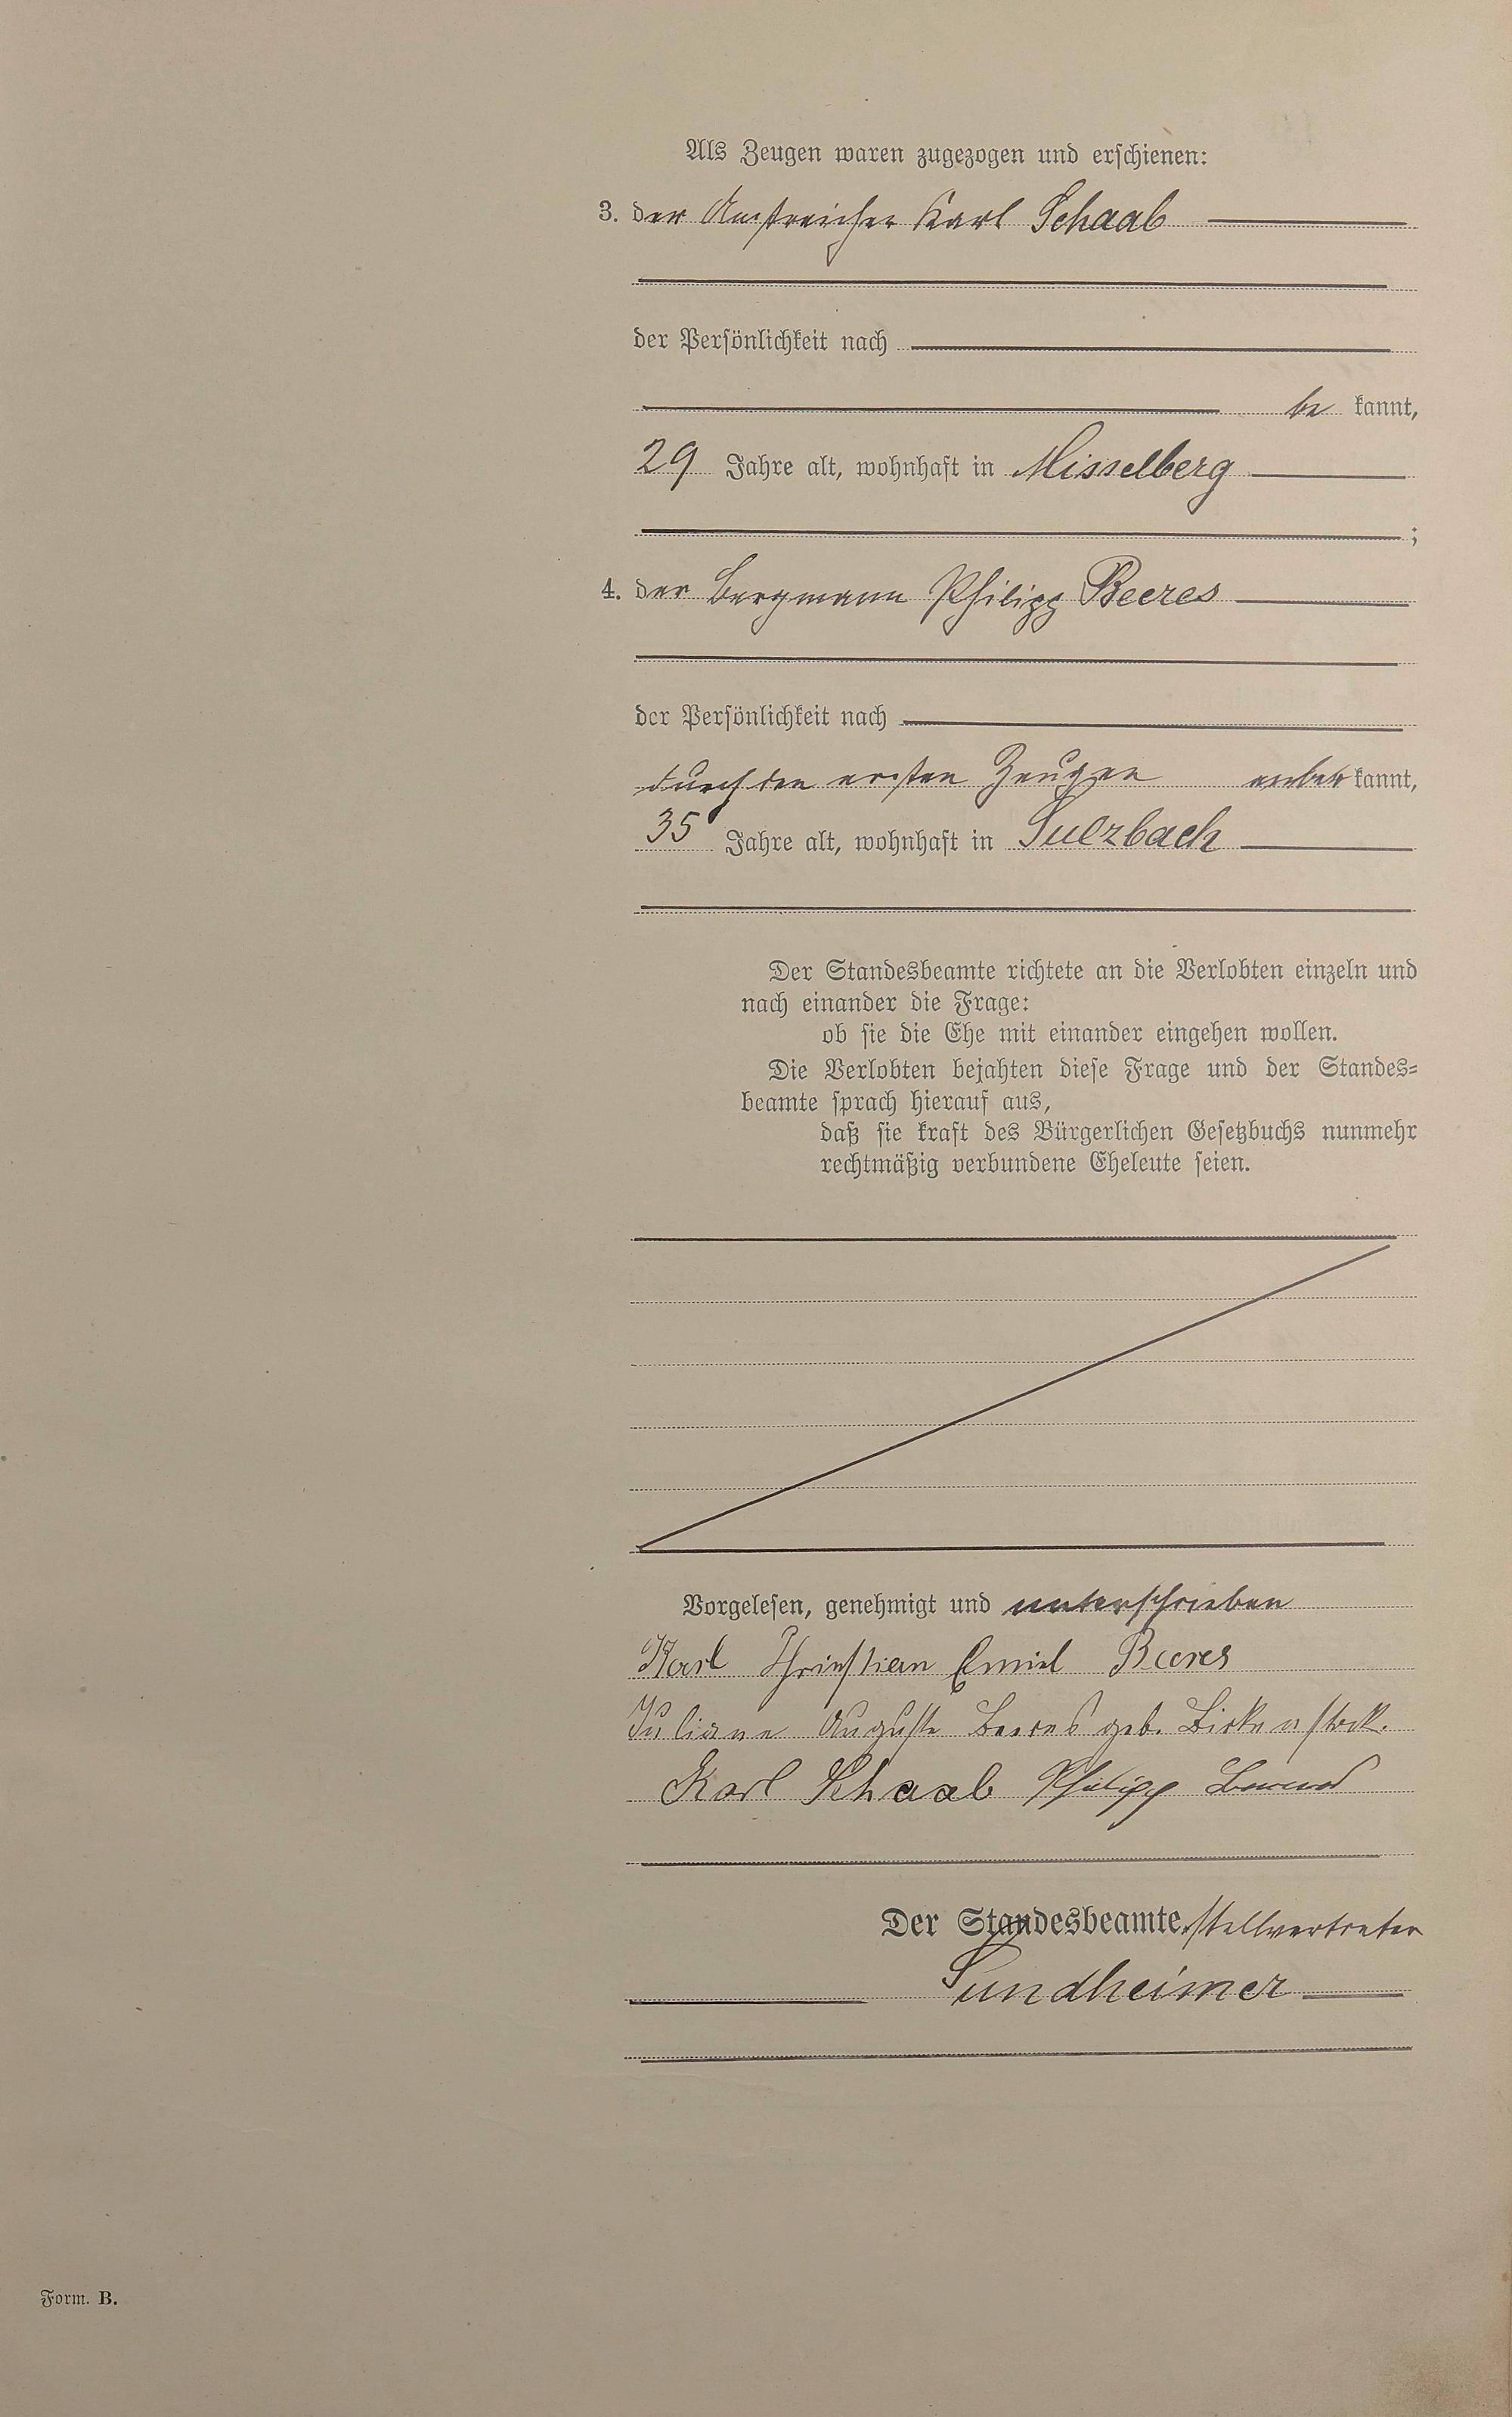 Als Zeugen waren zugezogen und erschienen:
3. der Anstreicher Karl Schaab
der Persönlichkeit nach
be kannt,
29 Jahre alt, wohnhaft in Misselberg
;
4. der Bergmann Philipp Beeres
der Persönlichkeit nach
durch den ersten Zeugen anerkannt,
35 Jahre alt, wohnhaft in Sulzbach
Der Standesbeamte richtete an die Verlobten einzeln und
nach einander die Frage:
ob sie die Ehe mit einander eingehen wollen.
Die Verlobten bejahten diese Frage und der Standes-
beamte sprach hierauf aus,
daß sie kraft des Bürgerlichen Gesetzbuchs nunmehr
rechtmäßig verbundene Eheleute seien.
Vorgelesen, genehmigt und unterschrieben
Karl Christian Emil Beeres
Juliane Auguste Beeres geb. Birkenstock.
Karl Schaab Philipp Beeres
Der Standesbeamte stellvertreter
Sundheimer
Form. B.